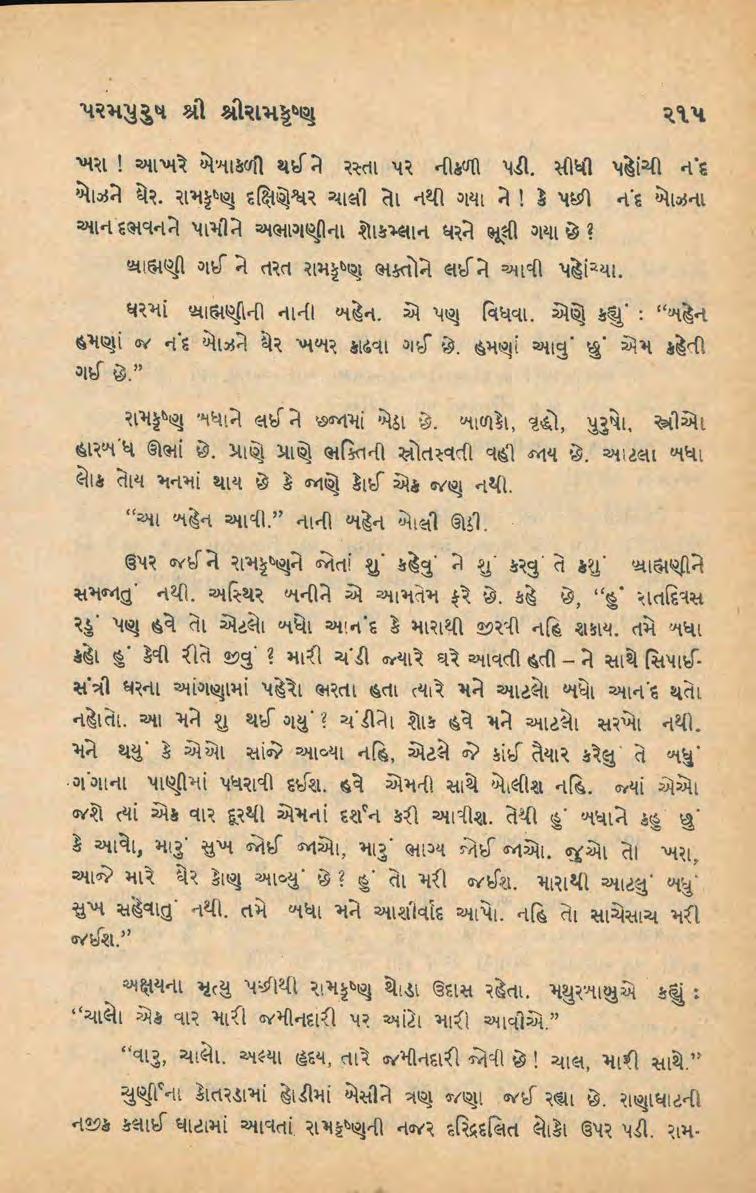 પરમપુરુષ શ્રી શ્રીરામકૃષ્ણ ૨૧૫
ખરા ! આખરે બેબાકળી થઈને રસ્તા પર નીકળી પડી. સીધી પહોંચી નંદ
બોઝને ઘેર. રામકૃષ્ણ દક્ષિણેશ્વર ચાલી તો નથી ગયા ને ! કે પછી નંદ બોઝના
આનંદભવનને પામીને અભાગણીના શોકમ્લાન ઘરને ભૂલી ગયા છે ?
બ્રાહ્મણી ગઈ ને તરત રામકૃષ્ણ ભક્તોને લઈને આવી પહોંચ્યા.
ઘરમાં બ્રાહ્મણીની નાની બહેન. એ પણ વિધવા. એણે કહ્યું : “બહેન
હમણાં જ નંદ બોઝને ઘેર ખબર કાઢવા ગઈ છે. હમણાં આવું છું એમ કહેતી
ગઈ છે.”
રામકૃષ્ણ બધાને લઈને છજામાં બેઠા છે. બાળકો, વૃદ્ધો, પુરુષો, સ્ત્રીઓ
હારબંધ ઊભાં છે. પ્રાણે પ્રાણે ભક્તિની સ્રોતસ્વતી વહી જાય છે. આટલા બધા
લોક તોય મનમાં થાય છે કે જાણે કોઈ એક જણ નથી.
“આ બહેન આવી.” નાની બહેન બોલી ઊઠી.
ઉપર જઈને રામકૃષ્ણને જોતાં શું કહેવું ને શું કરવું તે કશું બ્રાહ્મણીને
સમજાતું નથી. અસ્થિર બનીને એ આમતેમ ફરે છે. કહે છે, “હું રાતદિવસ
રડું પણ હવે તો એટલો બધો આનંદ કે મારાથી જીરવી નહિ શકાય. તમે બધા
કહો હું કેવી રીતે જીવું ? મારી ચંડી જ્યારે ઘરે આવતી હતી – ને સાથે સિપાઈ-
સંત્રી ઘરના આંગણામાં પહેરો ભરતા હતા ત્યારે મને આટલો બધો આનંદ થતો
નહોતો. આ મને શુ થઈ ગયું ? ચંડીનો શોક હવે મને આટલો સરખો નથી.
મને થયું કે એઓ સાંજે આવ્યા નહિ, એટલે જે કાંઈ તૈયાર કરેલુ તે બધું
ગંગાના પાણીમાં પધરાવી દઈશ. હવે એમની સાથે બોલીશ નહિ. જ્યાં એઓ
જશે ત્યાં એક વાર દૂરથી એમનાં દર્શન કરી આવીશ. તેથી હું બધાને કહુ છું
કે આવો, મારું સુખ જોઈ જાઓ, મારું ભાગ્ય જોઈ જાઓ. જુઓ તો ખરા,
આજે મારે ઘેર કોણ આવ્યું છે ? હું તો મરી જઈશ. મારાથી આટલું બધું
સુખ સહેવાતું નથી. તમે બધા મને આશીર્વાદ આપો. નહિ તો સાચેસાચ મરી
જઈશ.”
અક્ષયના મૃત્યુ પછીથી રામકૃષ્ણ થોડા ઉદાસ રહેતા. મથુરબાબુએ કહ્યું :
“ચાલો એક વાર મારી જમીનદારી પર આંટો મારી આવીએ.”
“વારુ, ચાલો. અલ્યા હૃદય, તારે જમીનદારી જોવી છે ! ચાલ, મારી સાથે.”
ચુર્ણીના કોતરડામાં હોડીમાં બેસીને ત્રણ જણા જઈ રહ્યા છે. રાણાઘાટની
નજીક કલાઈ ઘાટામાં આવતાં રામકૃષ્ણની નજર દરિદ્રદલિત લોકો ઉપર પડી. રામ-